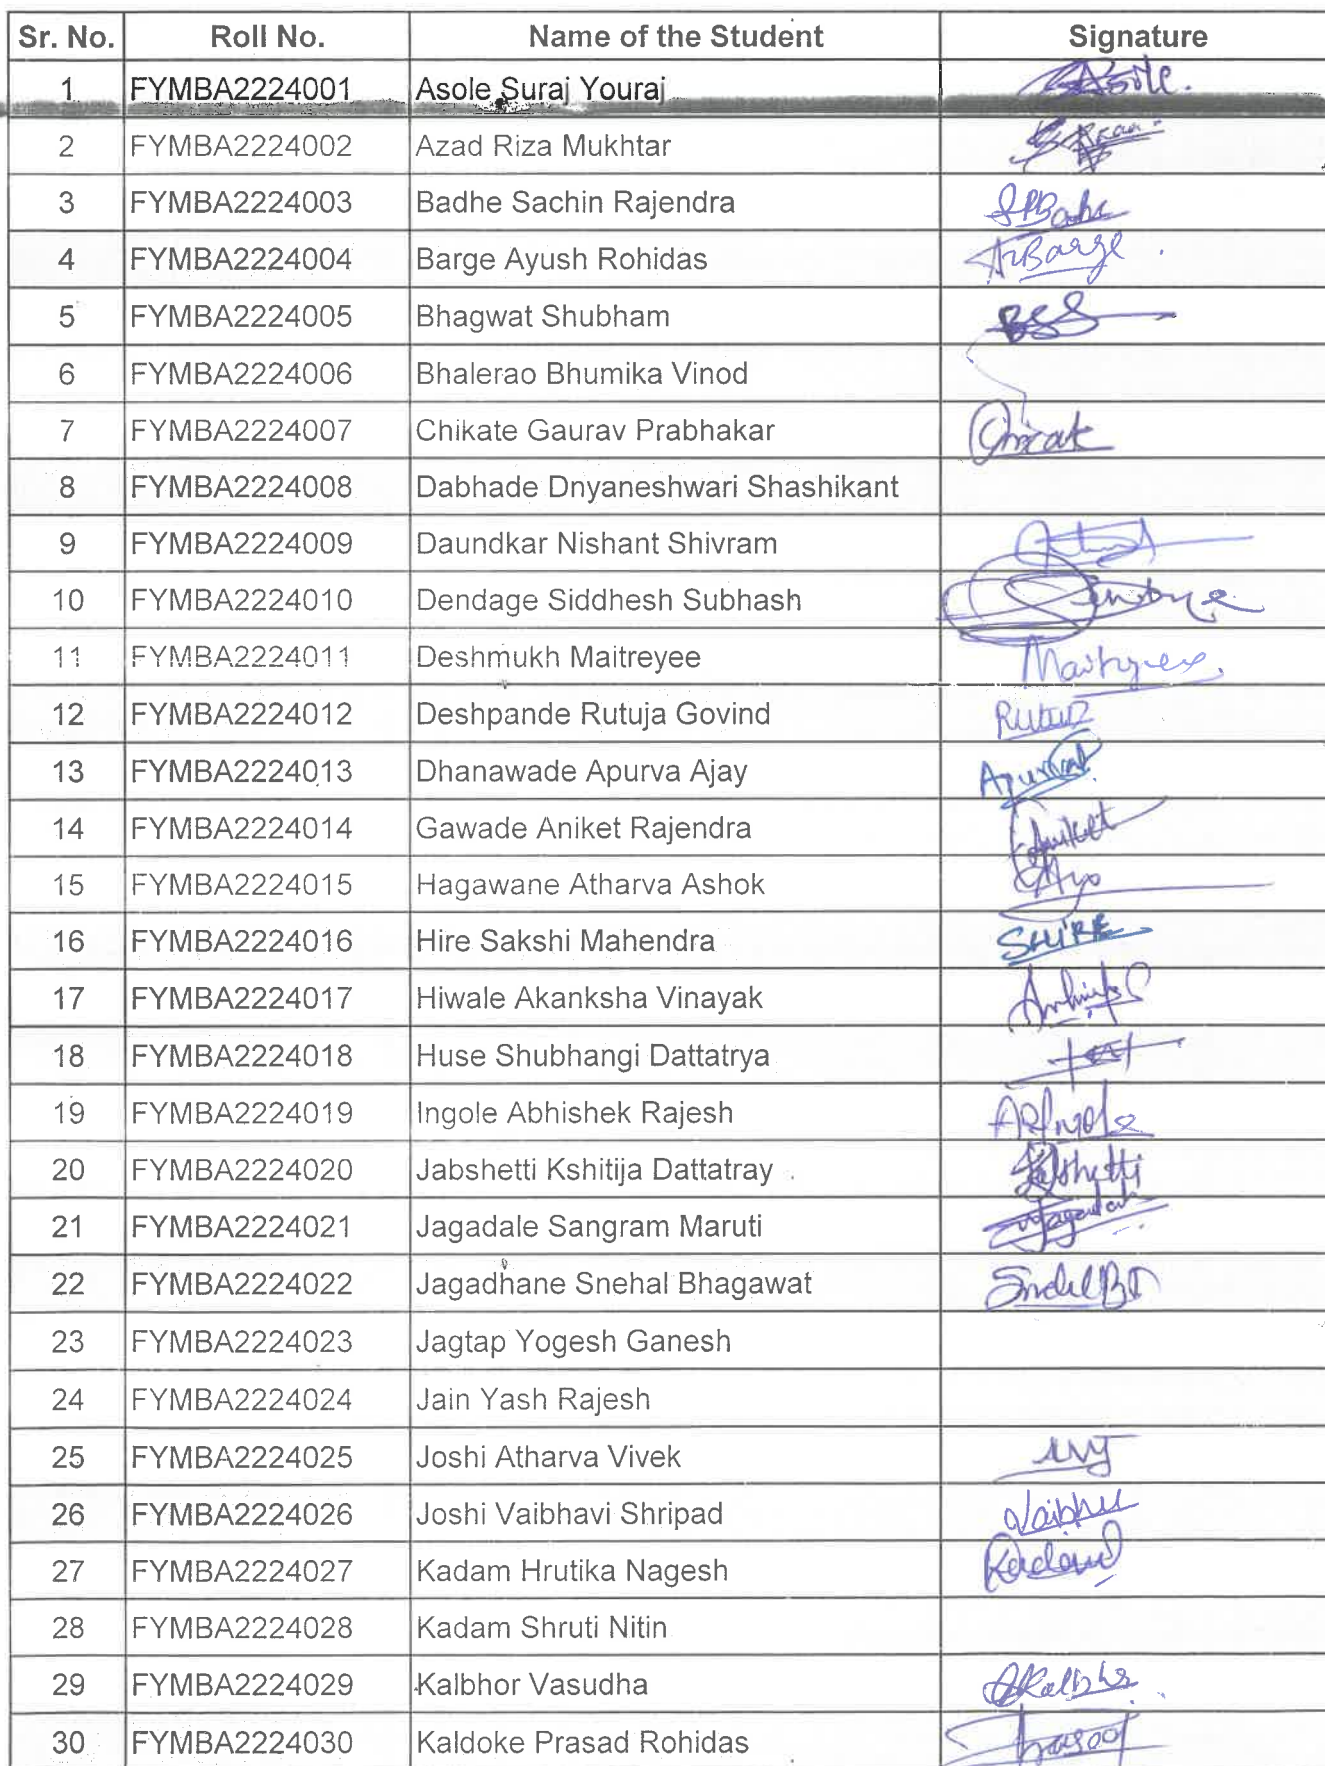 Sr. No. Roll No. Name of the Student Signature
1 FYMBA2224001 Asole Suraj Youraj Asole.
2 FYMBA2224002 Azad Riza Mukhtar
3 FYMBA2224003 Badhe Sachin Rajendra
4 FYMBA2224004 Barge Ayush Rohidas ARBarge
5 FYMBA2224005 Bhagwat Shubham BSS
6 FYMBA2224006 Bhalerao Bhumika Vinod
7 FYMBA2224007 Chikate Gaurav Prabhakar
8 FYMBA2224008 Dabhade Dnyaneshwari Shashikant
9 FYMBA2224009 Daundkar Nishant Shivram
10 FYMBA2224010 Dendage Siddhesh Subhash
11 FYMBA2224011 Deshmukh Maitreyee Maitreyee.
12 FYMBA2224012 Deshpande Rutuja Govind
13 FYMBA2224013 Dhanawade Apurva Ajay
14 FYMBA2224014 Gawade Aniket Rajendra Aniket
15 FYMBA2224015 Hagawane Atharva Ashok
16 FYMBA2224016 Hire Sakshi Mahendra SHIRE
17 FYMBA2224017 Hiwale Akanksha Vinayak
18 FYMBA2224018 Huse Shubhangi Dattatrya
19 FYMBA2224019 Ingole Abhishek Rajesh ARIngole
20 FYMBA2224020 Jabshetti Kshitija Dattatray
21 FYMBA2224021 Jagadale Sangram Maruti
22 FYMBA2224022 Jagadhane Snehal Bhagawat
23 FYMBA2224023 Jagtap Yogesh Ganesh
24 FYMBA2224024 Jain Yash Rajesh
25 FYMBA2224025 Joshi Atharva Vivek AVJ
26 FYMBA2224026 Joshi Vaibhavi Shripad
27 FYMBA2224027 Kadam Hrutika Nagesh
28 FYMBA2224028 Kadam Shruti Nitin
29 FYMBA2224029 Kalbhor Vasudha
30 FYMBA2224030 Kaldoke Prasad Rohidas